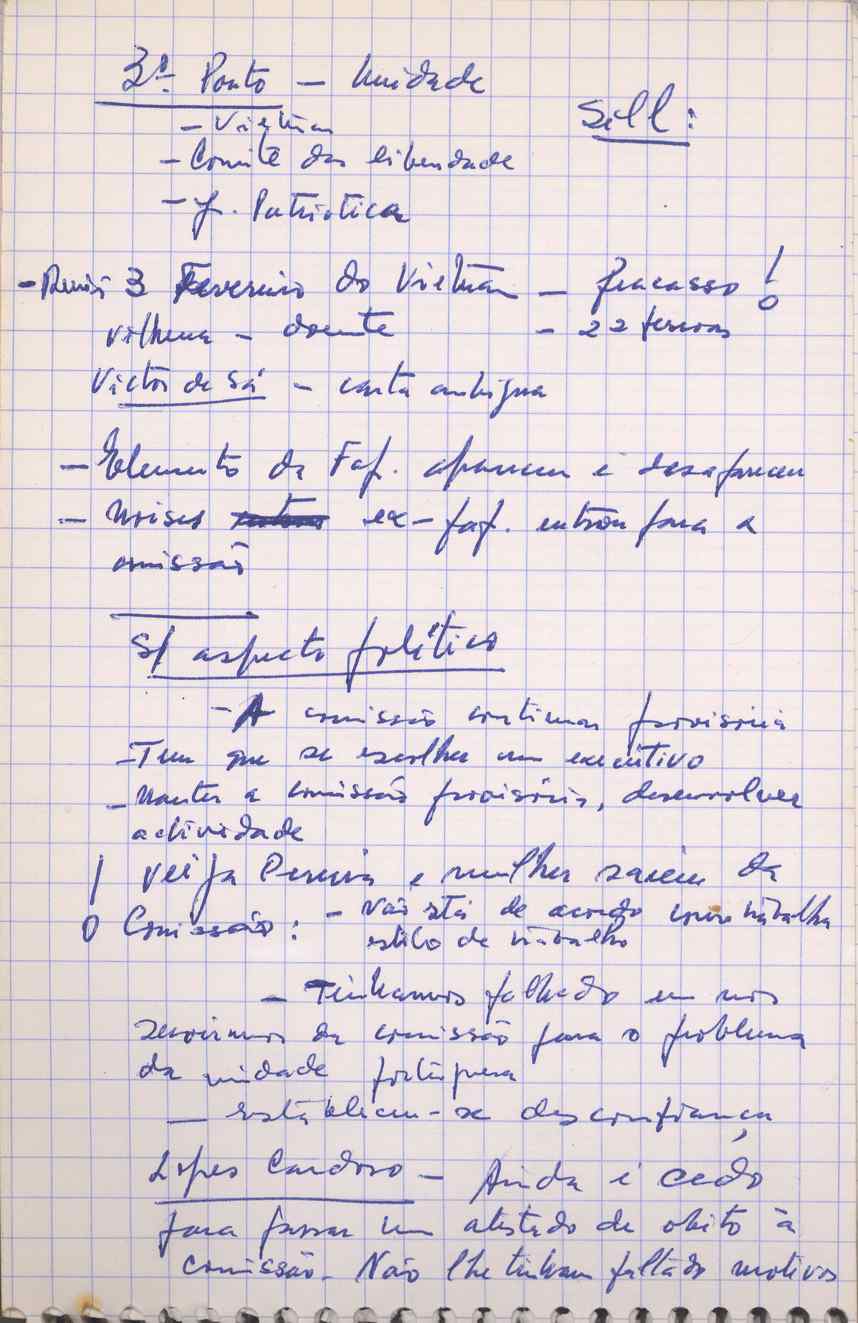 3º Ponto — Unidade
Sill:
— Vietnam
— Comité das liberdade
— f. Patriotica
— 3 Fevereiro do Vietnam — fracasso!
Vilhena — doente — 22 pessoas
Victor de Sá — carta ambigua
— Elemento da Fap. aparecem e desaparecem
— Moises ex-fap. entrou para a
comissão
S/ aspecto político
— A comissão continua provisoria
— Tem que se escolher um executivo
— Manter a comissão provisória, desenvolver
actividade
! Veiga Pereira e mulher saiem da
Comissão: — Não stá de acordo como trabalha
estilo de trabalho
— Tinhamos falhado em nos
servirmos da comissão para o problema
da unidade portuguesa
— estabelecem-se desconfiança,
Lopes Cardoso — Ainda é cedo
para passar um atestado de obito à
comissão. Não lhe tinham faltado motivos